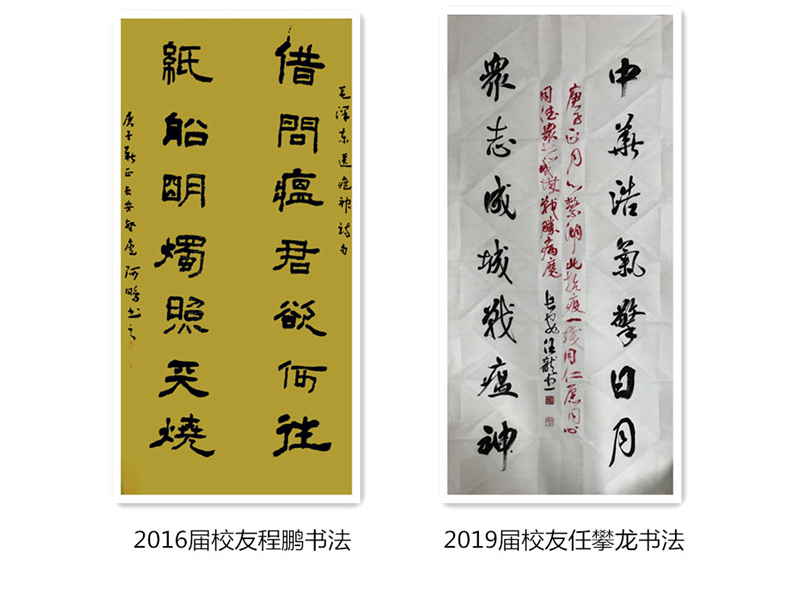 毛泽东送瘟神诗句
借問瘟君欲何往
紙船明燭照天燒
庚子新正長安
阿鵬书之
中華浩氣擎日月
庚子正月心繫湖北抗疫一线同仁愿同心
同德眾志成城战勝病魔
衆志成城戰瘟神
2016届校友程鹏书法
2019届校友任攀龙书法